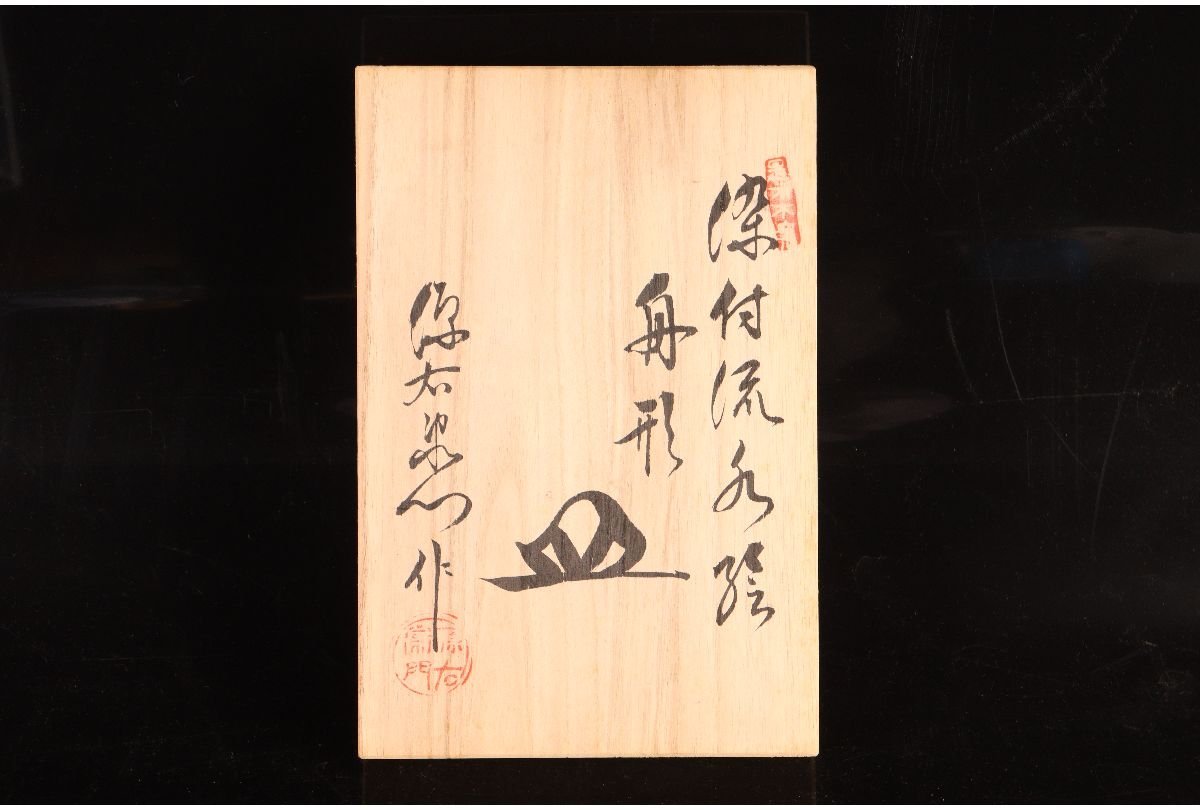 染付流水絵
舟形
皿
源右衛門作
源右衛門